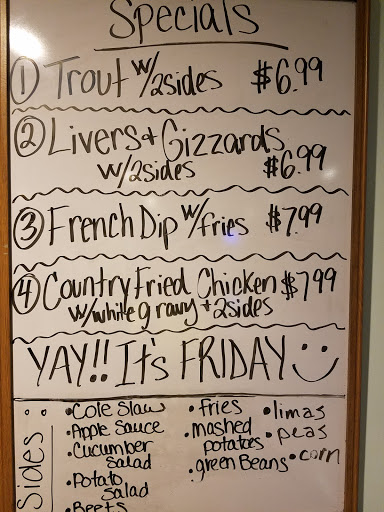 Specials
① Trout w/2sides $6.99
② Livers + Gizzards
w/2sides $6.99
③ French Dip w/fries $7.99
④ Country Fried Chicken $7.99
w/white gravy + 2sides
YAY!! It's FRIDAY
Sides:
• Cole Slaw
• Apple Sauce
• Cucumber
Salad
• Potato
Salad
• Beets
• fries
• mashed
potatoes
• green Beans
• limas
• peas
• corn